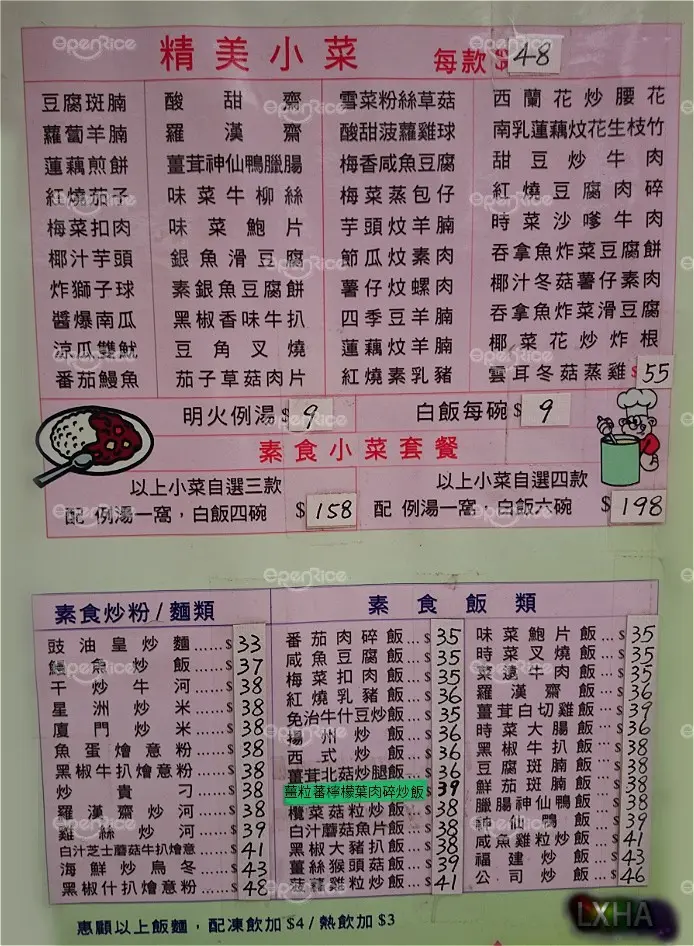 精美小菜 每款$48
豆腐斑腩 酸甜齋 雪菜粉絲草菇 西蘭花炒腰花
蘿蔔羊腩 羅漢齋 酸甜菠蘿雞球 南乳蓮藕炆花生枝竹
蓮藕煎餅 薑茸神仙鴨臘腸 梅香咸魚豆腐 甜豆炒牛肉
紅燒茄子 味菜牛柳絲 梅菜蒸包仔 紅燒豆腐肉碎
梅菜扣肉 味菜鮑片 芋頭炆羊腩 時菜沙嗲牛肉
椰汁芋頭 銀魚滑豆腐 節瓜炆素肉 吞拿魚炸菜豆腐餅
炸獅子球 素銀魚豆腐餅 薯仔炆螺肉 椰汁冬菇薯仔素肉
醬爆南瓜 黑椒香味牛扒 四季豆羊腩 吞拿魚炸菜滑豆腐
涼瓜雙魷 豆角叉燒 蓮藕炆羊腩 椰菜花炒炸根
番茄鰻魚 茄子草菇肉片 紅燒素乳豬 雲耳冬菇蒸雞$55
明火例湯$9 白飯每碗$9
素食小菜套餐
以上小菜自選三款 以上小菜自選四款
配 例湯一窩，白飯四碗 $158 配 例湯一窩，白飯六碗 $198
素食炒粉/麵類
豉油皇炒麵......$33
鰻魚炒飯......$37
干炒牛河......$38
星洲炒米......$38
廈門炒米......$38
魚蛋燴意粉......$38
黑椒牛扒燴意粉......$38
炒貴刁......$38
羅漢齋炒河......$38
雞絲炒河......$39
白汁芝士蘑菇牛扒燴意......$41
海鮮炒烏冬......$43
黑椒什扒燴意粉......$48
素食飯類
番茄肉碎飯...$35
咸魚豆腐飯...$35
梅菜扣肉飯...$35
紅燒乳豬飯...$36
免治牛什豆炒飯...$35
揚州炒飯...$36
西式炒飯...$36
薑茸北菇炒腿飯$36
薑粒蕃檸檬葉肉碎炒飯$39
欖菜菇粒炒飯...$38
白汁蘑菇魚片飯...$38
黑椒大豬扒飯...$38
薑絲猴頭菇飯...$39
菠蘿雞粒炒飯...$41
味菜鮑片飯...$35
時菜叉燒飯...$35
菜遠牛肉飯...$35
羅漢齋飯...$36
薑茸白切雞飯...$39
時菜大腸飯...$36
黑椒牛扒飯...$38
豆腐斑腩飯...$38
鮮茄斑腩飯...$38
臘腸神仙鴨飯...$38
神仙鴨飯...$39
咸魚雞粒炒飯...$41
福建炒飯...$43
公司炒飯...$46
惠顧以上飯麵，配凍飲加$4/熱飲加$3
LXHA